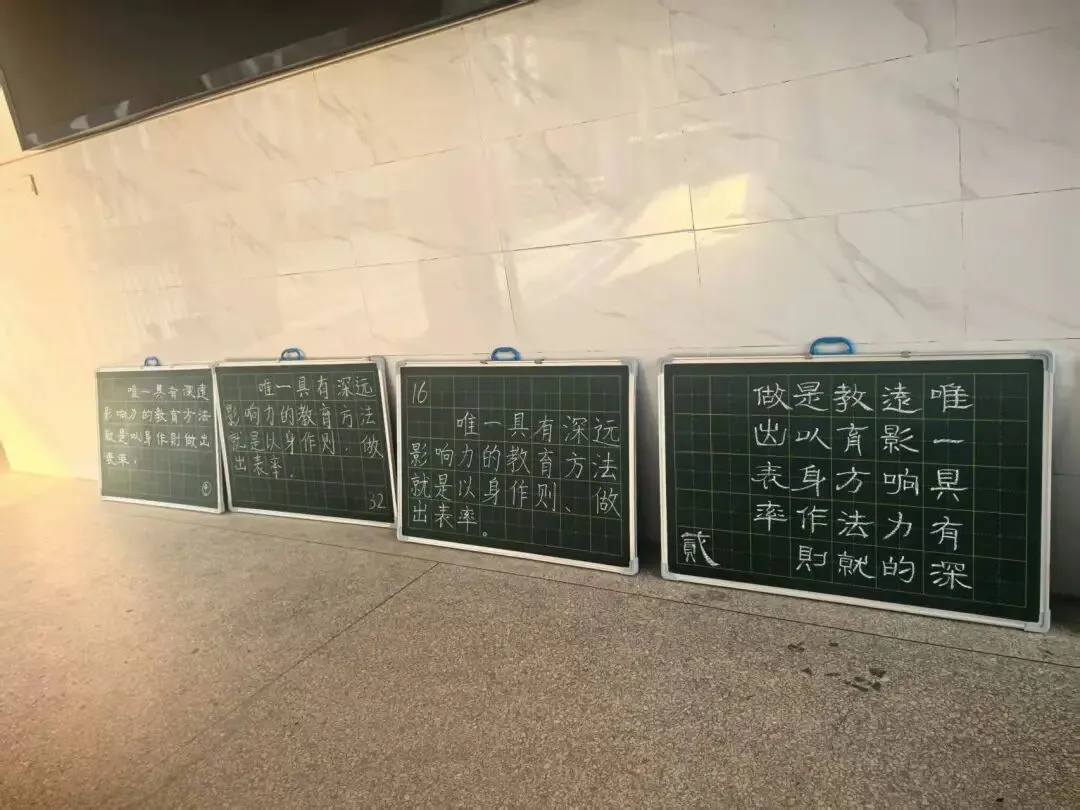 唯一具有深远
影响力的教育方法
就是以身作则做出
表率。
唯一具有深远
影响力的教育方法
就是以身作则,做
出表率!
32
16
唯一具有深远
影响力的教育方法
就是以身作则、做
出表率。
唯一具有深
遠影响力的
教育方法就
是以身作則
做出表率
貳